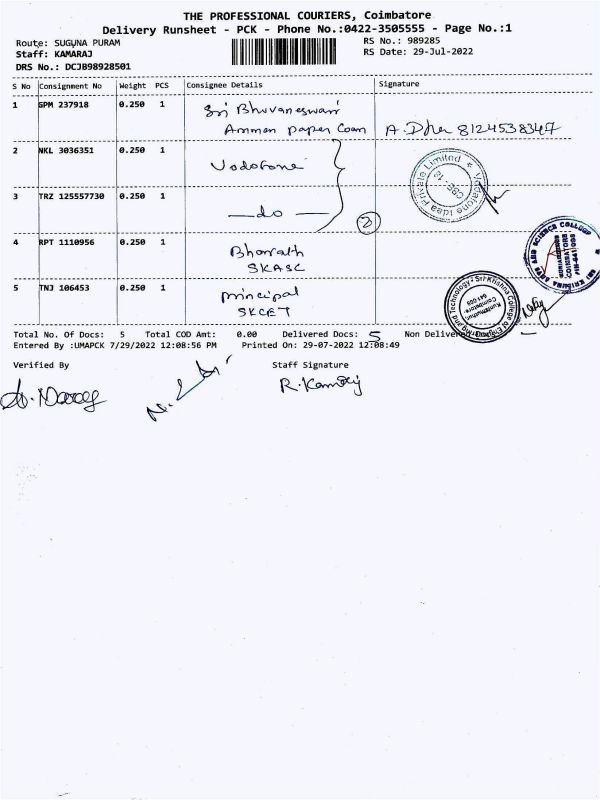 THE PROFESSIONAL COURIERS, Coimbatore
Delivery Runsheet - PCK - Phone No.:0422-3505555 - Page No.:1
Route: SUGUNA PURAM
RS No.: 989285
Staff: KAMARAJ
RS Date: 29-Jul-2022
DRS No.: DCJB98928501
S No Consignment No Weight PCS Consignee Details Signature
1 GPM 237918 0.250 1 Sri Bhuvaneswari
Amman paper Coan A. Dha 8124538347
2 NKL 3036351 0.250 1 Vodofone
Vodafone Idea Private Limited ★ CBE-18
3 TRZ 125557730 0.250 1 —do—
2
4 RPT 1110956 0.250 1 Bharath
SKASC
SRI KRISHNA ARTS AND SCIENCE COLLEGE
COIMBATORE
5 TNJ 106453 0.250 1 principal
SKCET
Sri Krishna College of Engineering and Technology
Kuniamuthur
Coimbatore
641 008
Total No. Of Docs: 5 Total COD Amt: 0.00 Delivered Docs: 5 Non Delivered
Entered By :UMAPCK 7/29/2022 12:08:56 PM Printed On: 29-07-2022 12:08:49
Verified By Staff Signature
R. Kamaraj